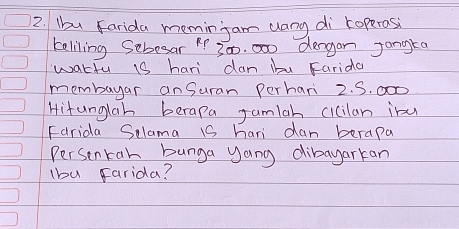 2. Ibu Farida meminjam uang di koperasi
keliling sebesar Rp 300.000 dengan jangka
waktu 15 hari dan ibu Farida
membayar ansuran perhari 25.000
Hitunglah berapa jumlah cicilan ibu
Farida Selama 15 hari dan berapa
Persenkah bunga yang dibayarkan
ibu Farida?